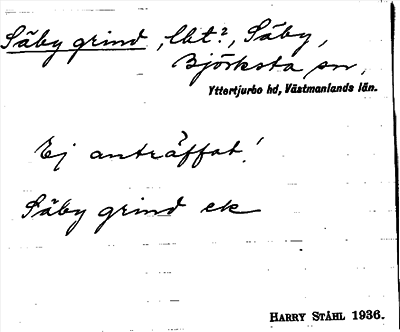 Säby grind, lht?, Säby,
Björksta sn,
Yttertjurbo hd, Västmanlands län.
Ej anträffat!
Säby grind ek
HARRY STÅHL 1936.